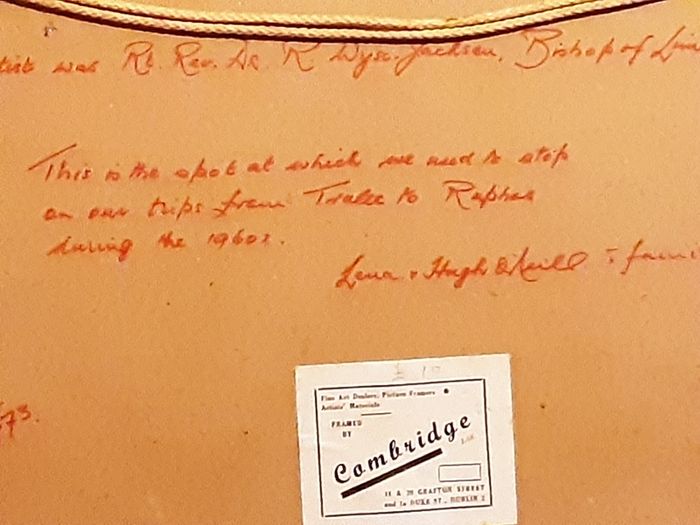 tist was Rt. Rev. Dr. R Wyse-Jackson, Bishop of Lim
This is the spot at which we used to stop
on our trips from Tralee to Raphoe
during the 1960s.
Lena & Hugh O'Neill & fami
73.
£ 10
Fine Art Dealers, Picture Framers
Artists' Materials
FRAMED
BY
Combridge
Ltd
11 & 20 GRAFTON STREET
and 1a DUKE ST., DUBLIN 2